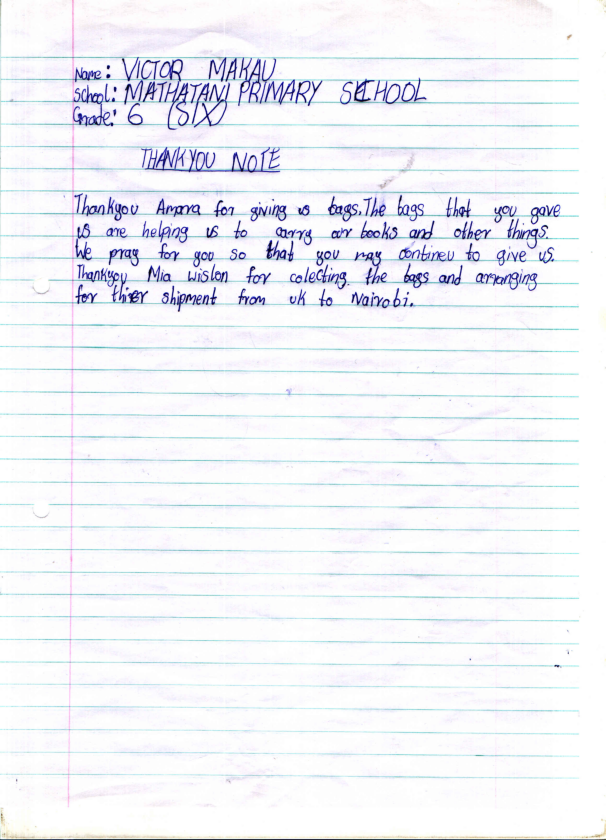 Name: VICTOR MAKAU
School: MATHATANI PRIMARY SCHOOL
Grade: 6 (SIX)
THANKYOU NOTE
Thankyou Amara for giving us bags. The bags that you gave
us are helping us to carry our books and other things.
We pray for you so that you may contineu to give us.
Thankyou Mia Wislon for colecting the bags and arranging
for thier shipment from uk to Nairobi.